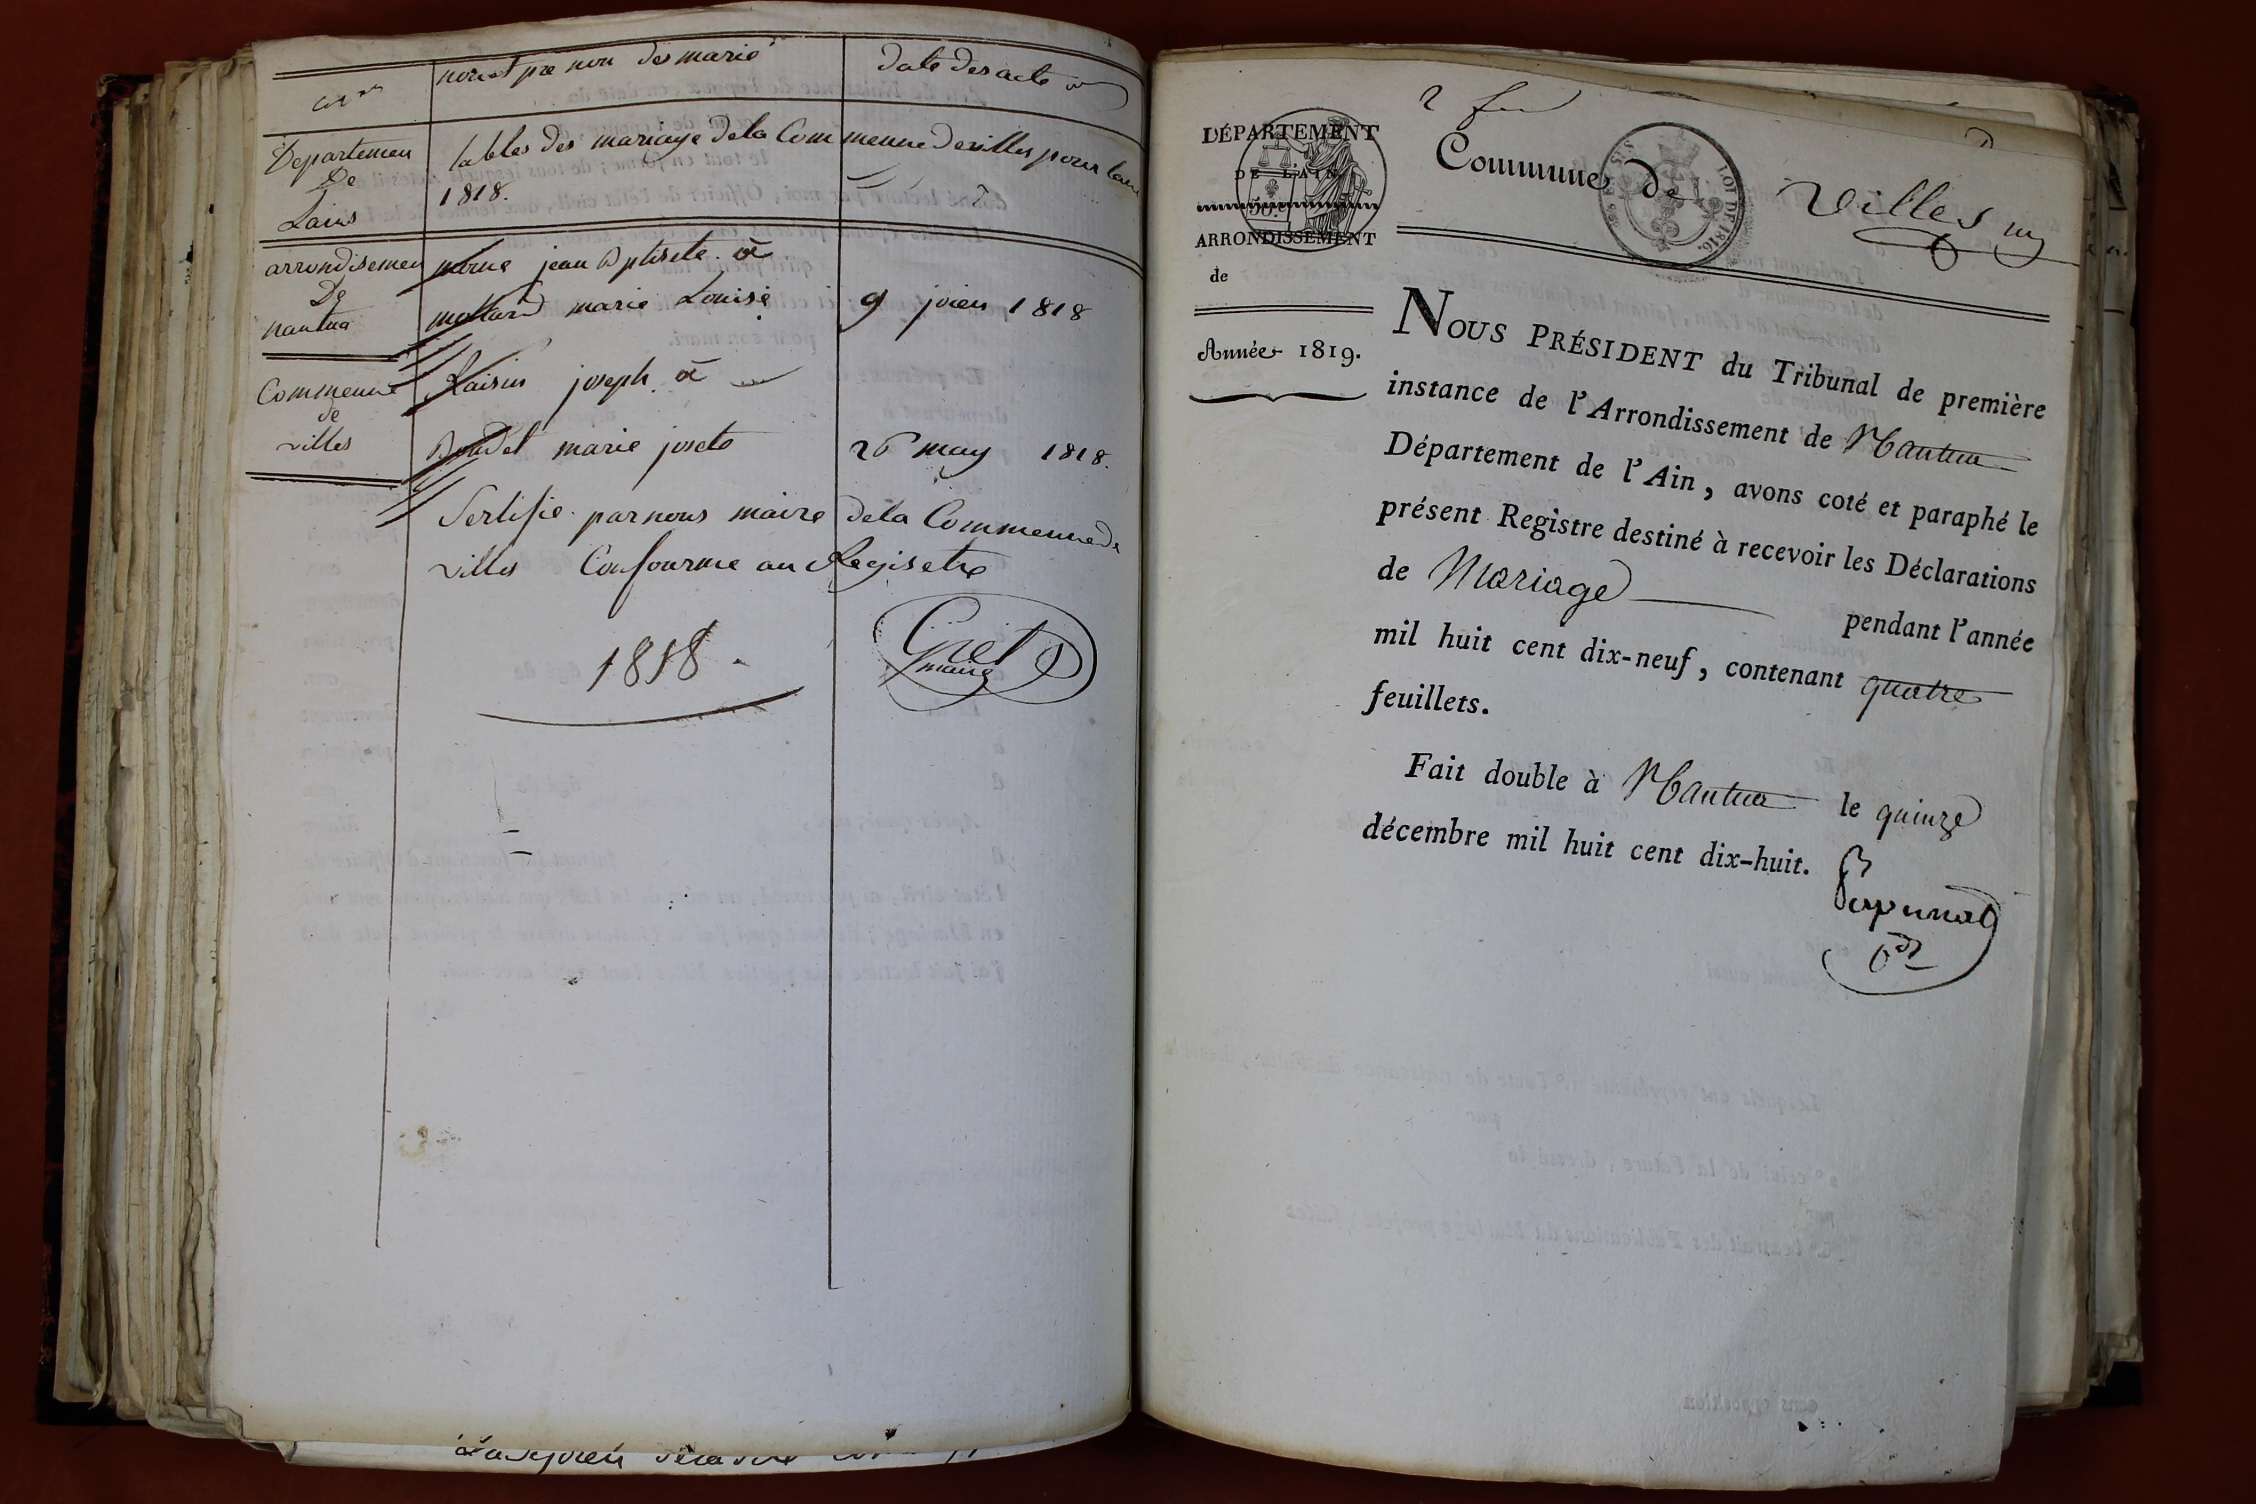 nom et pre nom des marié
date des acte
Departemen
De
Lains
tables des mariage dela Commeune devilles pour lané
1818.
arrondisemen
De
nantua
jean Bptisete et
mottard marie Louise
9 jvien 1818
Commeune
de
villes
Raisin joseph et
Boudet marie josete
26 may 1818.
Sertifie par nous maire dela Commeune de
villes Confourme au Regisetre
1818
maire
2 fr
DÉPARTEMENT
DE L'AIN
50.c
ARRONDISSEMENT
de
Année 1819.
Commune de Villes
LOI DE 1816.
NOUS PRÉSIDENT du Tribunal de première
instance de l'Arrondissement de Nantua
Département de l'Ain, avons coté et paraphé le
présent Registre destiné à recevoir les Déclarations
de Mariage pendant l'année
mil huit cent dix-neuf, contenant quatre
feuillets.
Fait double à Nantua le quinze
décembre mil huit cent dix-huit.